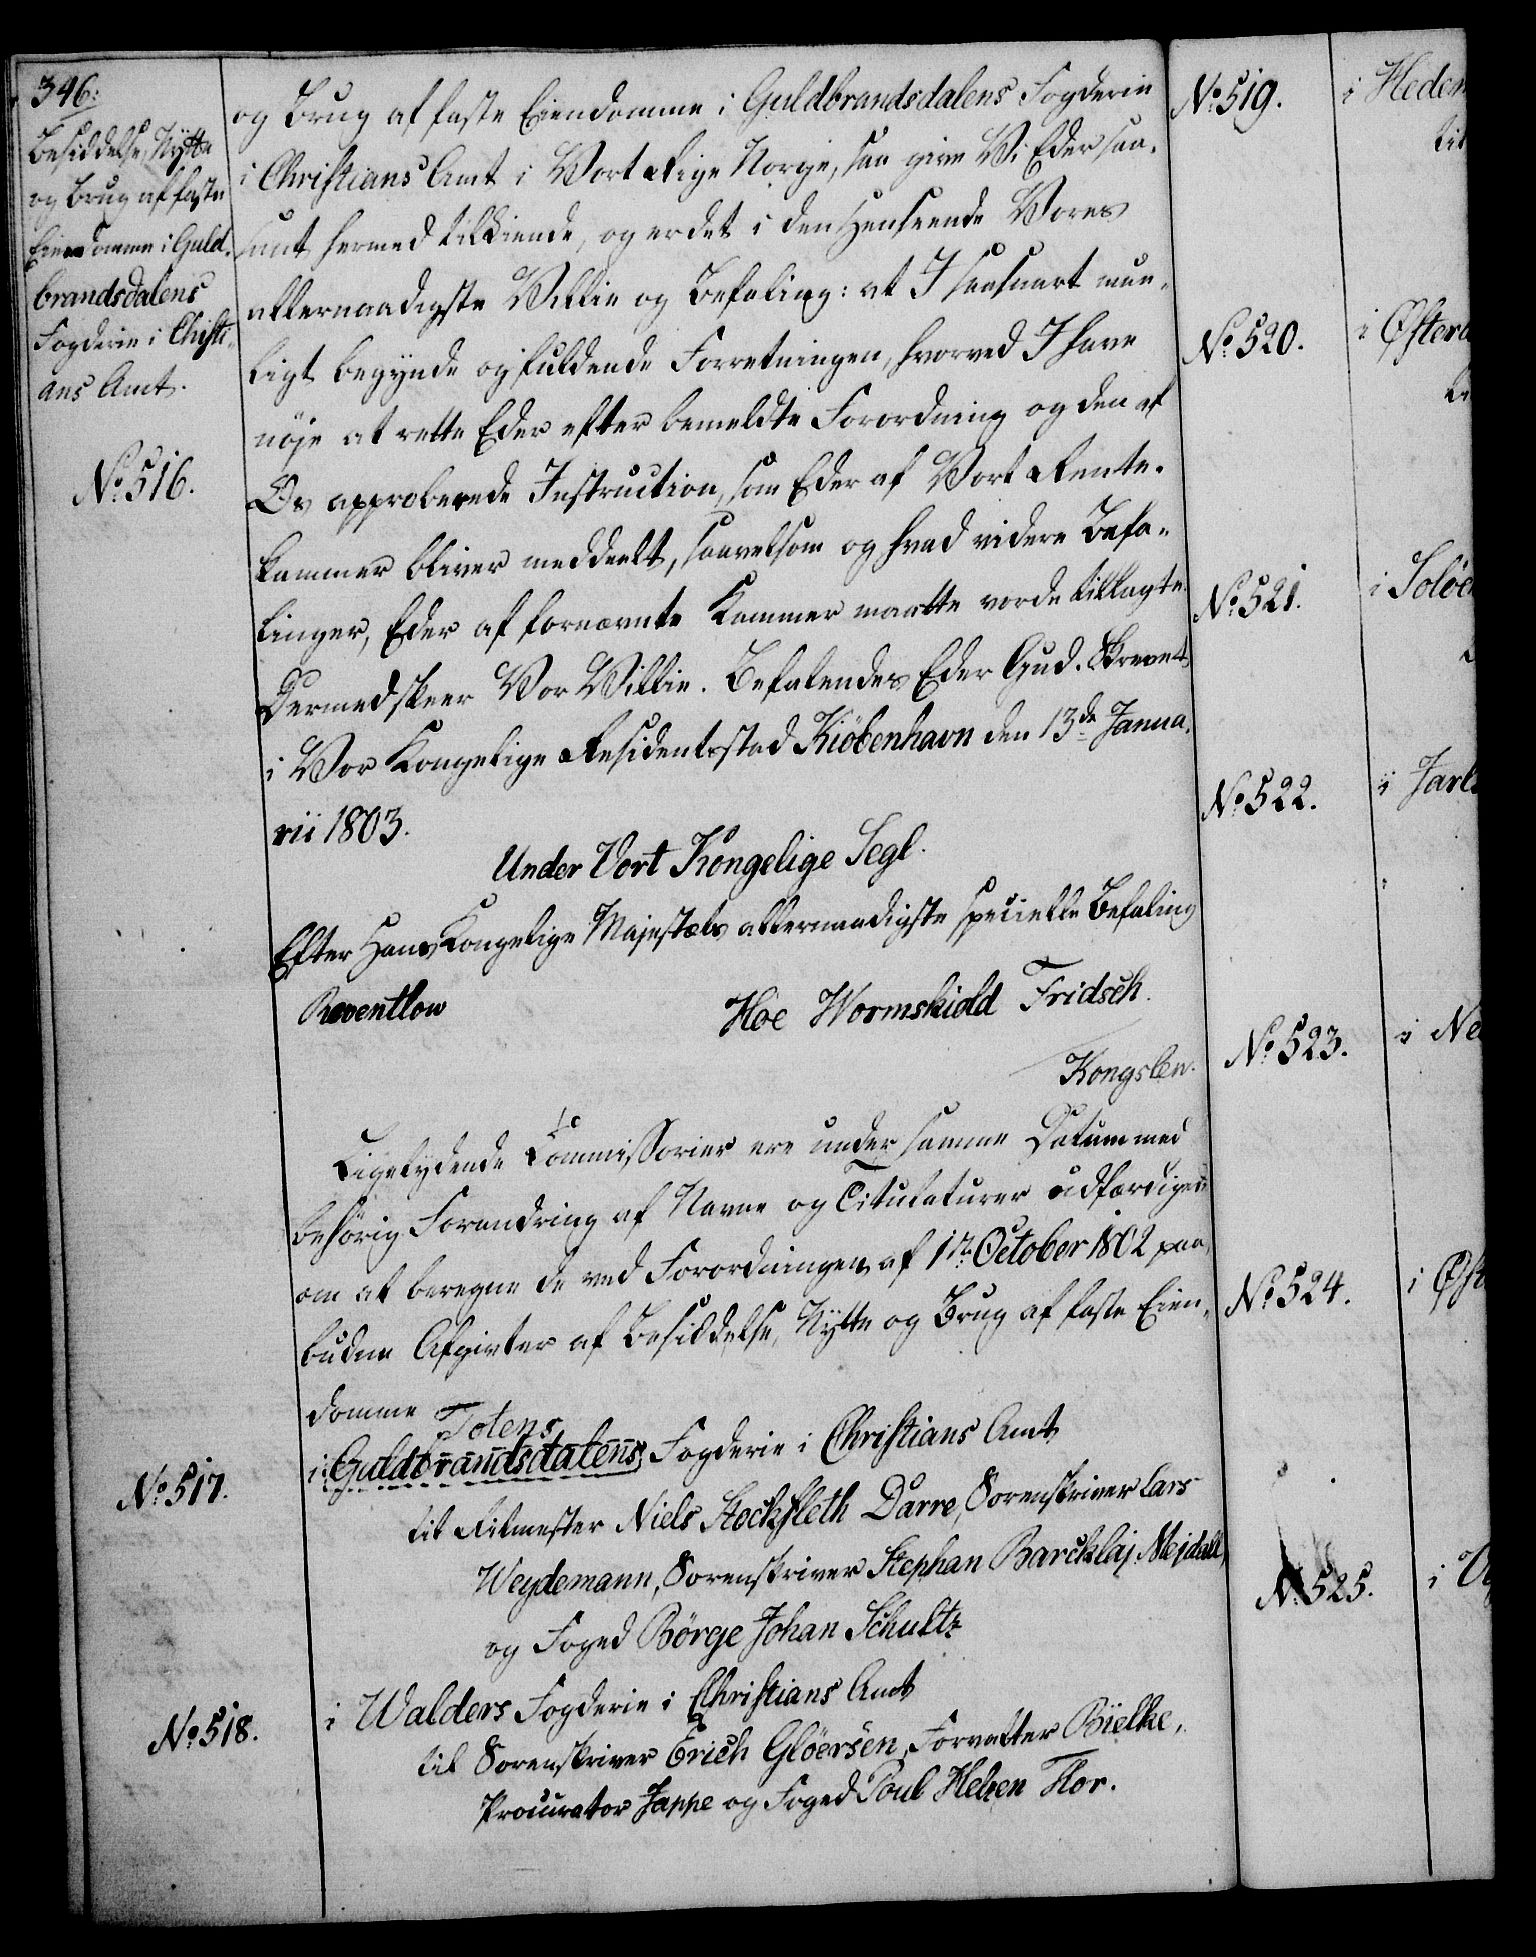 346.
Besiddelse, Nytte
og Brug af faste
Eiendomme i Guld-
brandsdalens
Fogderie i Christi-
ans Amt.
No. 516.
og Brug af faste Eiendomme i Guldbrandsdalens Fogderie
i Christians Amt i Vort Rige Norge, saa give Vi Eder saa-
unt hermed tilkiende, og er det i den Henseende Vores
allernaadigste Villie og Befaling: at I saasnart mue-
ligt begynde og fuldende Forretningen, hvorved I have
nøje at rette Eder efter bemeldte Forordning og den af
Os approberede Instruction, som Eder af Vort Rente-
kammer bliver meddeelt, saavelsom og hvad videre Befa-
linger, Eder af fornævnte Kammer maatte vorde tillagte.
Dermed skeer Vor Villie. Befalendes Eder Gud. Skrevet
i Vor Kongelige Residentsstad Kiöbenhavn den 13de Janua-
rii 1803.
Under Vort Kongelige Segl.
Efter Hans Kongelige Majestæts allernaadigste specielle Befaling
Reventlow
Hoe Wormskiold Fridsch.
Kongslev.
Ligelydende Commissorier ere under samme Datum med
behörig Forandring af Navne og Titulaturer udfærdigede
om at beregne de ved Forordningen af 1te October 1802 paa-
budne Afgivter af Besiddelse, Nytte og Brug af faste Eien-
domme
Totens
No. 517.
i Guldbrandsdalens Fogderie i Christians Amt
til Ritmester Niels Stockfleth Darre, Sorenskriver Lars
Weydemann, Sorenskriver Stephan Barcklaj Mejdell,
og Foged Börge Johan Schultz
No. 518.
i Walders Fogderie i Christians Amt
til Sorenskriver Erich Glöersen, Forvalter Bielke,
Procurator Jappe og Foged Poul Helzen Flor.
No. 519.
i Hedem
til
No. 520.
i Øster
No. 521.
i Solöe
No. 522.
i Jarls
No. 523.
i Ne
No. 524.
i Øst
No. 525.
i